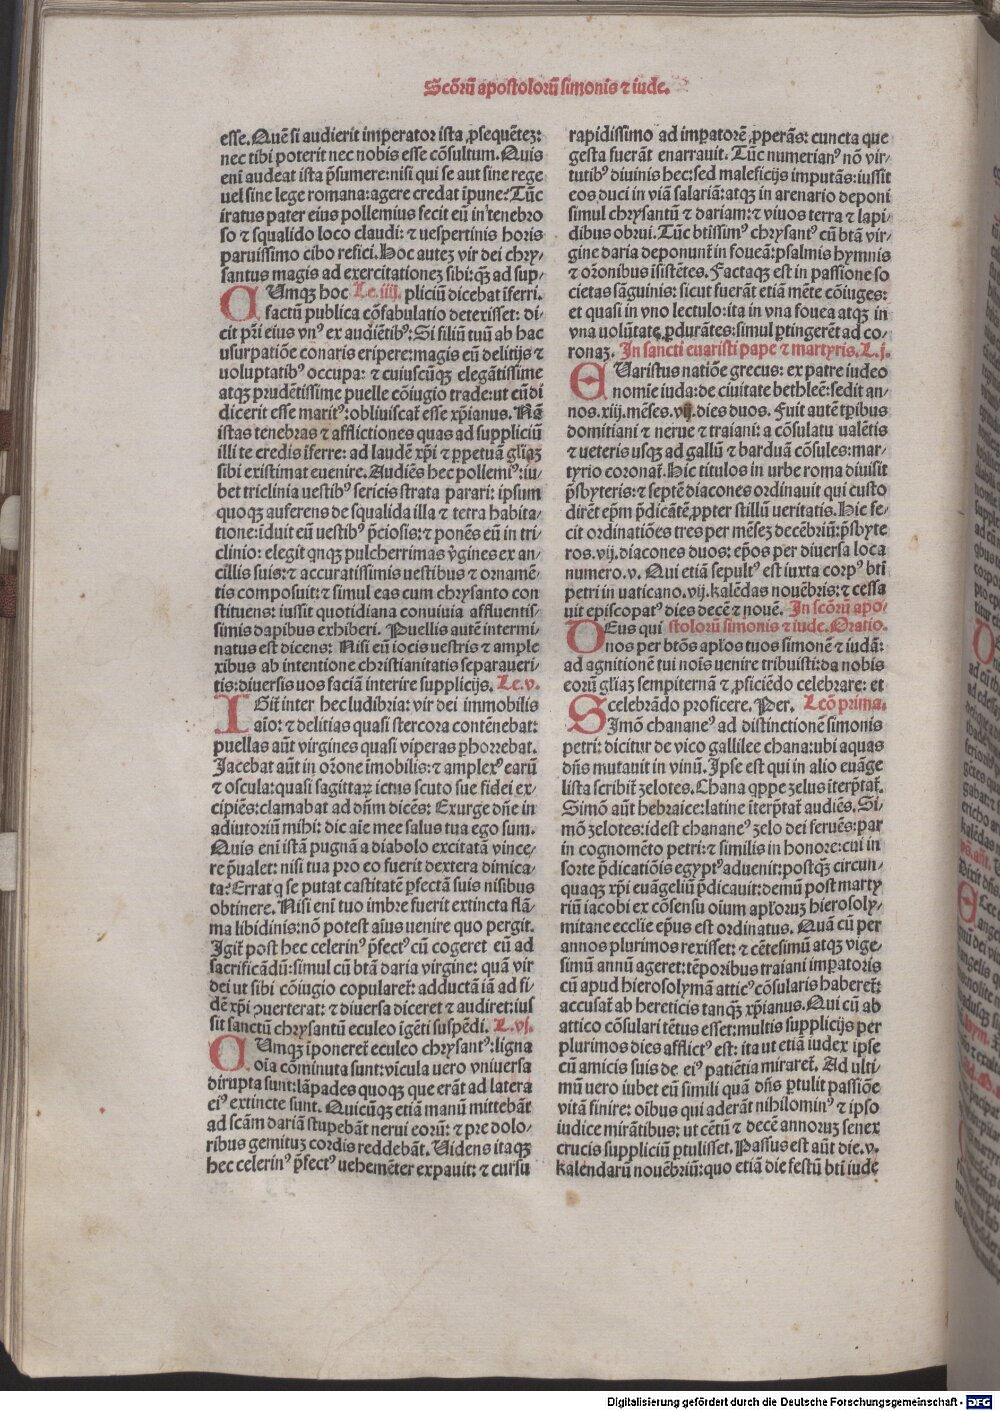 Scõrũ apostolorũ simonis ⁊ iude.
esse. Quẽ si audierit imperator ista ꝓsequẽteꝫ:
nec tibi poterit nec nobis esse cõsultum. Quis
eni audeat ista p̃sumere: nisi qui se aut sine rege
uel sine lege romana: agere credat ĩpune? Tũc
iratus pater eius pollemius fecit eũ in tenebro
so ⁊ squalido loco claudi: ⁊ uespertinis horis
paruissimo cibo refici. Hoc auteꝫ vir dei chry-
santus magis ad exercitationeꝫ sibi: q̃ꝫ ad sup-
CUmqꝫ hoc Le. iiij. pliciũ dicebat ĩferri.
factũ publica cõfabulatio detexisset: di-
cit pr̃i eius vnꝰ ex audiẽtibꝰ: Si filiũ tuũ ab hac
usurpatiõe conaris eripere: magis eũ delitijs ⁊
uoluptatibꝰ occupa: ⁊ cuiuscũqꝫ elegãtissime
atqꝫ prudẽtissime puelle cõiugio trade: ut eũ di
dicerit esse maritꝰ: obliuiscat᷑ esse xp̃ianus. Nã
istas tenebras ⁊ afflictiones quas ad suppliciũ
illi te credis ĩferre: ad laudẽ xp̃i ⁊ ꝑpetuã gl̃iaꝫ
sibi existimat euenire. Audiẽs hec pollemiꝰ: iu-
bet triclinia uestibꝰ sericis strata parari: ipsum
quoqꝫ auferens de squalida illa ⁊ tetra habita-
tione: ĩduit eũ uestibꝰ p̃ciosis: ⁊ ponẽs eũ in tri-
clinio: elegit qnqꝫ pulcherrimas v̾gines ex an-
cillis suis: ⁊ accuratissimis uestibus ⁊ ornamẽ-
tis composuit: ⁊ simul eas cum chrysanto con
stituens: iussit quotidiana conuiuia affluentis-
simis dapibus exhiberi. Puellis autẽ intermi-
natus est dicens: Nisi eũ iocis uestris ⁊ ample
xibus ab intentione christianitatis separaueri-
tis: diuersis uos faciã interire supplicijs. Le. v.
IGit᷑ inter hec ludibria: vir dei immobilis
aĩo: ⁊ delitias quasi stercora contẽnebat:
puellas aũt virgines quasi viperas ꝑhorrebat.
Jacebat aũt in or̃one ĩmobilis: ⁊ amplexꝰ earũ
⁊ oscula: quasi sagittaꝝ ictus scuto sue fidei ex-
cipiẽs: clamabat ad dñm dicẽs: Exurge dñe in
adiutoriũ mihi: dic aĩe mee salus tua ego sum.
Quis eni istã pugnã a diabolo excitatã vince-
re p̃ualet: nisi tua pro eo fuerit dextera dimica-
ta? Errat q se putat castitatẽ ꝑfectã suis nisibus
obtinere. Nisi eni tuo imbre fuerit extincta flã-
ma libidinis: nõ potest aĩus uenire quo pergit.
Jgit᷑ post hec celerinꝰ p̃fectꝰ cũ cogeret eũ ad
sacrificãdũ: simul cũ btã daria virgine: quã vir
dei ut sibi cõiugio copularet᷑: adductã iã ad fi-
dẽ xp̃i ꝯuerterat: ⁊ diuersa diceret ⁊ audiret: ius
sit sanctũ chrysantũ eculeo ĩgẽti suspẽdi. L. vj.
CUmqꝫ ĩponeret᷑ eculeo chrysantꝰ: ligna
oĩa cõminuta sunt: vĩcula uero vniuersa
dirupta sunt: lãpades quoqꝫ que erãt ad latera
eiꝰ extincte sunt. Quicũqꝫ etiã manũ mittebãt
ad scãm dariã stupebãt nerui eorũ: ⁊ pre dolo-
ribus gemituꝫ cordis reddebãt. Uidens itaqꝫ
hec celerinꝰ p̃fectꝰ uehemẽter expauit: ⁊ cursu
rapidissimo ad imꝑatorẽ ꝓperãs: cuncta que
gesta fuerãt enarrauit. Tũc numerianꝰ nõ vir-
tutibꝰ diuinis hec: sed maleficijs imputãs: iussit
eos duci in viã salariã: atqꝫ in arenario deponi
simul chrysantũ ⁊ dariam: ⁊ viuos terra ⁊ lapi-
dibus obrui. Tũc btissimꝰ chrysantꝰ cũ btã vir-
gine daria deponunt᷑ in foueã: psalmis hymnis
⁊ or̃onibus ĩsistẽtes. Factaqꝫ est in passione so
cietas sãguinis: sicut fuerãt etiã mẽte cõiuges:
et quasi in vno lectulo: ita in vna fouea atqꝫ in
vna uolũtate ꝑdurãtes: simul ꝑtingerẽt ad co-
ronaꝫ. In sancti euaristi pape ⁊ martyris. L. j.
EUaristus natiõe grecus: ex patre iudeo
nomĩe iuda: de ciuitate bethleẽ: sedit an-
nos. xiij. mẽses. vij. dies duos. Fuit autẽ tꝑibus
domitiani ⁊ nerue ⁊ traiani: a cõsulatu ualẽtis
⁊ ueteris usqꝫ ad gallũ ⁊ barduã cõsules: mar-
tyrio coronat᷑. Hic titulos in urbe roma diuisit
p̃sbyteris: ⁊ septẽ diacones ordinauit qui custo
dirẽt ep̃m p̃dicãtẽ ꝓpter stillũ ueritatis. Hic fe-
cit ordinatiões tres per mẽseꝫ decẽbriũ: p̃sbyte
ros. vij. diacones duos: ep̃os per diuersa loca
numero. v. Qui etiã sepultꝰ est iuxta corpꝰ bti
petri in vaticano. vij. kalẽdas nouẽbris: ⁊ cessa
uit episcopatꝰ dies decẽ ⁊ nouẽ. In scõrũ apo-
DEus qui stolorũ simonis ⁊ iude. Oratio.
nos per btõs apl̃os tuos simonẽ ⁊ iudã:
ad agnitionẽ tui noĩs uenire tribuisti: da nobis
eorũ gl̃iaꝫ sempiternã ⁊ ꝓficiẽdo celebrare: et
celebrãdo proficere. Per. Lcõ prima.
SImõ chananeꝰ ad distinctionẽ simonis
petri: dicitur de vico gallilee chana: ubi aquas
dñs mutauit in vinũ. Ipse est qui in alio euãge
lista scribit᷑ ȝelotes. Chana qꝓpe ȝelus ĩterp̃tat᷑.
Simõ aũt hebraice: latine ĩterp̃tat᷑ audiẽs. Si-
mõ ȝelotes: idest chananeꝰ ȝelo dei feruẽs: par
in cognomẽto petri: ⁊ similis in honore: cui in
sorte p̃dicatiõis egyptꝰ aduenit: postqꝫ̃ circun-
quaqꝫ xp̃i euãgeliũ p̃dicauit: demũ post marty
riũ iacobi ex cõsensu oium apl̃oruꝫ hierosoly-
mitane ecclĩe ep̃us est ordinatus. Quã cũ per
annos plurimos rexisset: ⁊ cẽtesimũ atqꝫ vige-
simũ annũ ageret: tẽporibus traiani imꝑatoris
cũ apud hierosolymã atticꝰ cõsularis haberet᷑:
accusat᷑ ab hereticis tanqꝫ̃ xp̃ianus. Qui cũ ab
attico cõsulari tẽtus esset: multis supplicijs per
plurimos dies afflictꝰ est: ita ut etiã iudex ipse
cũ amicis suis de eiꝰ patiẽtia miraret᷑. Ad ulti-
mũ uero iubet eũ simili quã dñs ꝑtulit passiõe
vitã finire: oĩbus qui aderãt nihilominꝰ ⁊ ipso
iudice mirãtibus: ut cẽtũ ⁊ decẽ annoruꝫ senex
crucis suppliciũ ꝑtulisset. Passus est aũt die. v.
kalendarũ nouẽbriũ: quo etiã die festũ bti iude
Digitalisierung gefördert durch die Deutsche Forschungsgemeinschaft - DFG